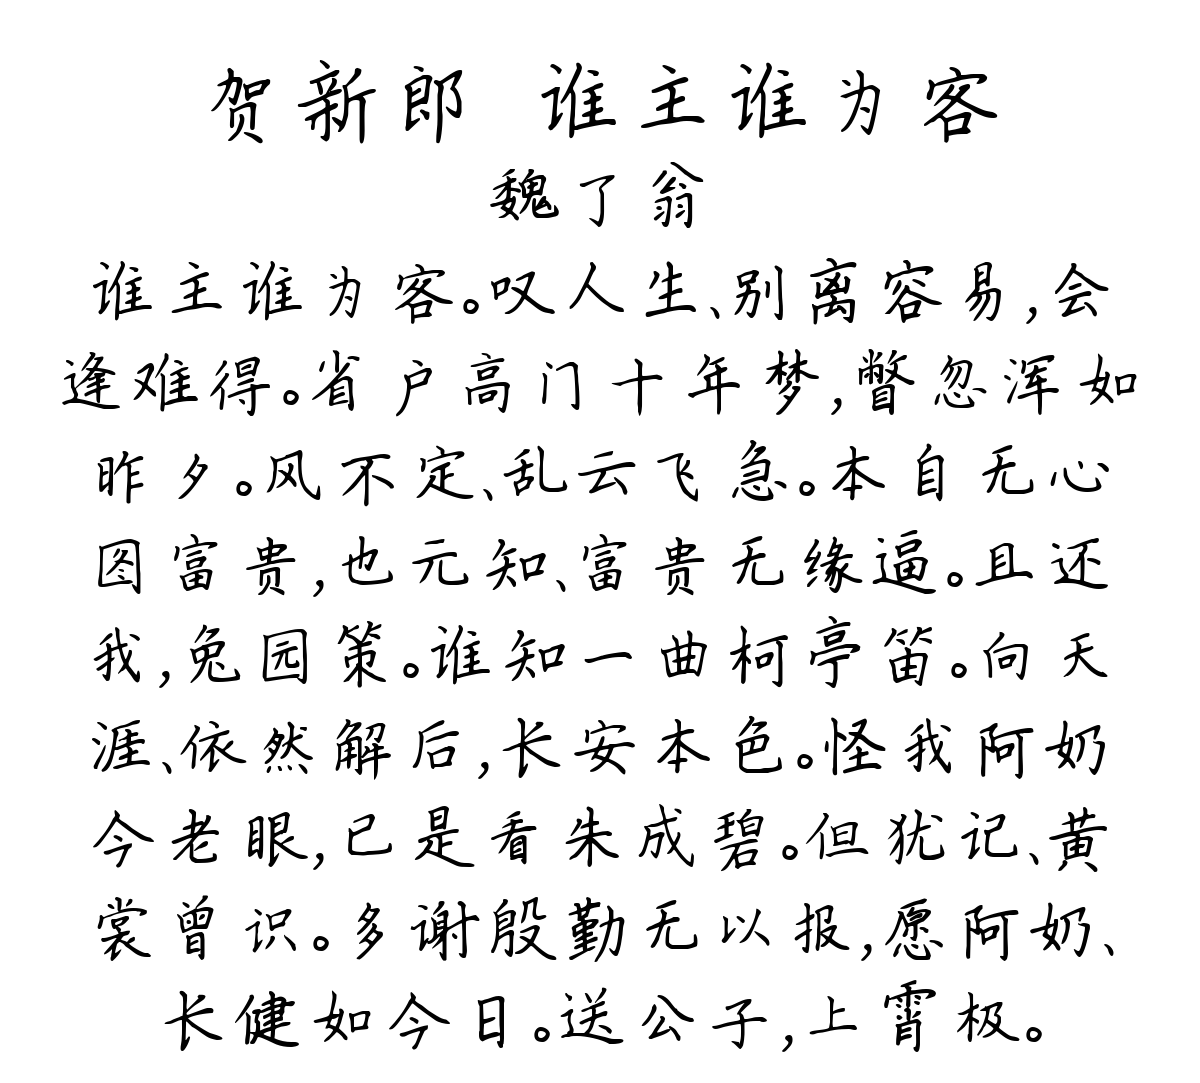 贺新郎 谁主谁为客
魏了翁
谁主谁为客。叹人生、别离容易,会
逢难得。省户高门十年梦,瞥忽浑如
昨夕。风不定、乱云飞急。本自无心
图富贵,也元知、富贵无缘逼。且还
我,兔园策。谁知一曲柯亭笛。向天
涯、依然解后,长安本色。怪我阿奶
今老眼,已是看朱成碧。但犹记、黄
裳曾识。多谢殷勤无以报,愿阿奶、
长健如今日。送公子,上霄极。